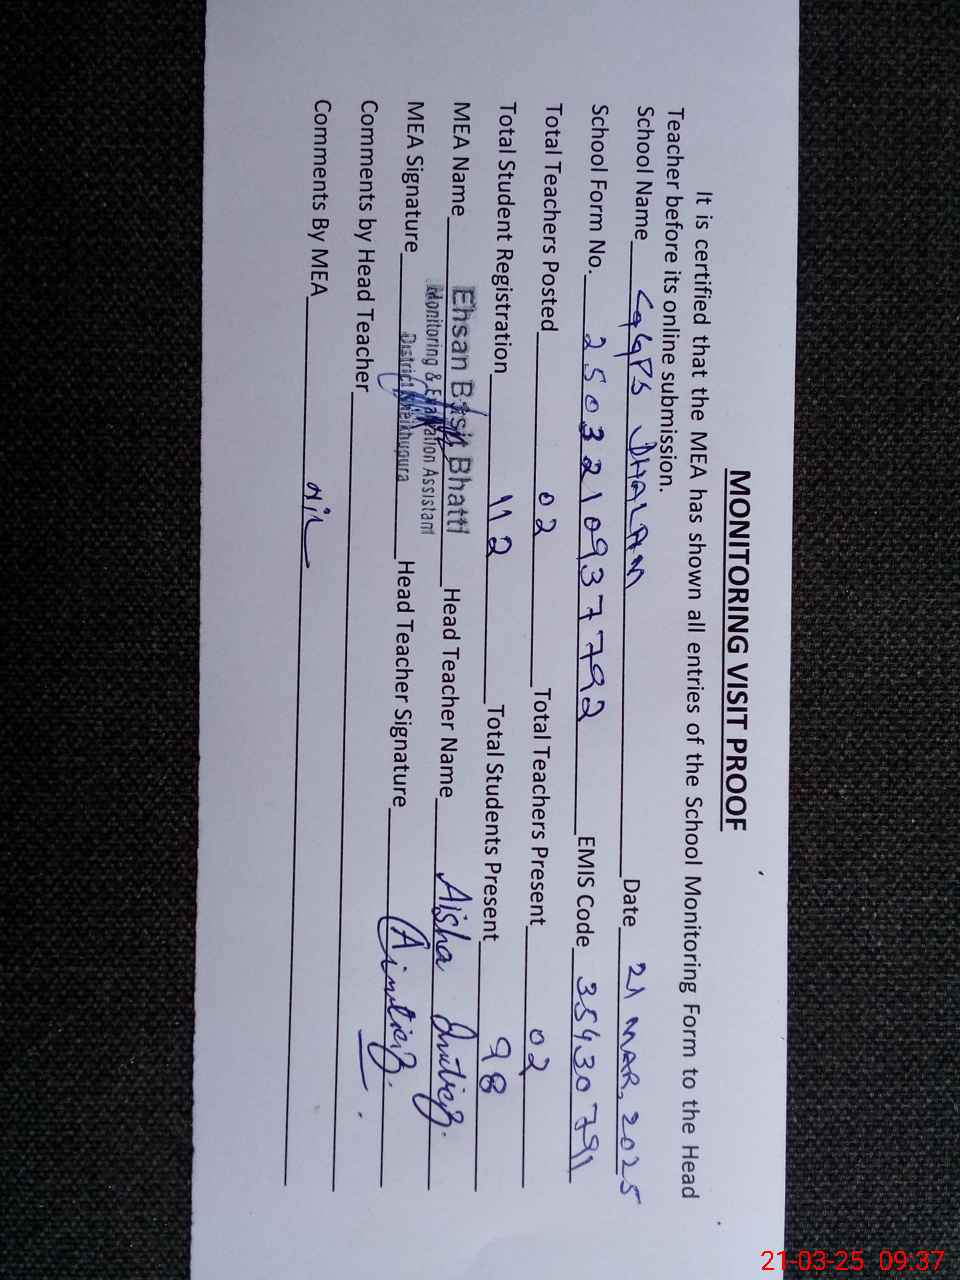 MONITORING VISIT PROOF
It is certified that the MEA has shown all entries of the School Monitoring Form to the Head
Teacher before its online submission.
School Name GGPS DHALAM Date 21 MAR, 2025
School Form No. 25032109377792 EMIS Code 35430791
Total Teachers Posted 02 Total Teachers Present 02
Total Student Registration 112 Total Students Present 98
MEA Name Ehsan Basit Bhatti Head Teacher Name Aisha Imtiaz.
Monitoring & Evaluation Assistant
District Sheikhupura
MEA Signature Head Teacher Signature Aimtiaz.
Comments by Head Teacher
Comments By MEA Nil
21-03-25 09:37